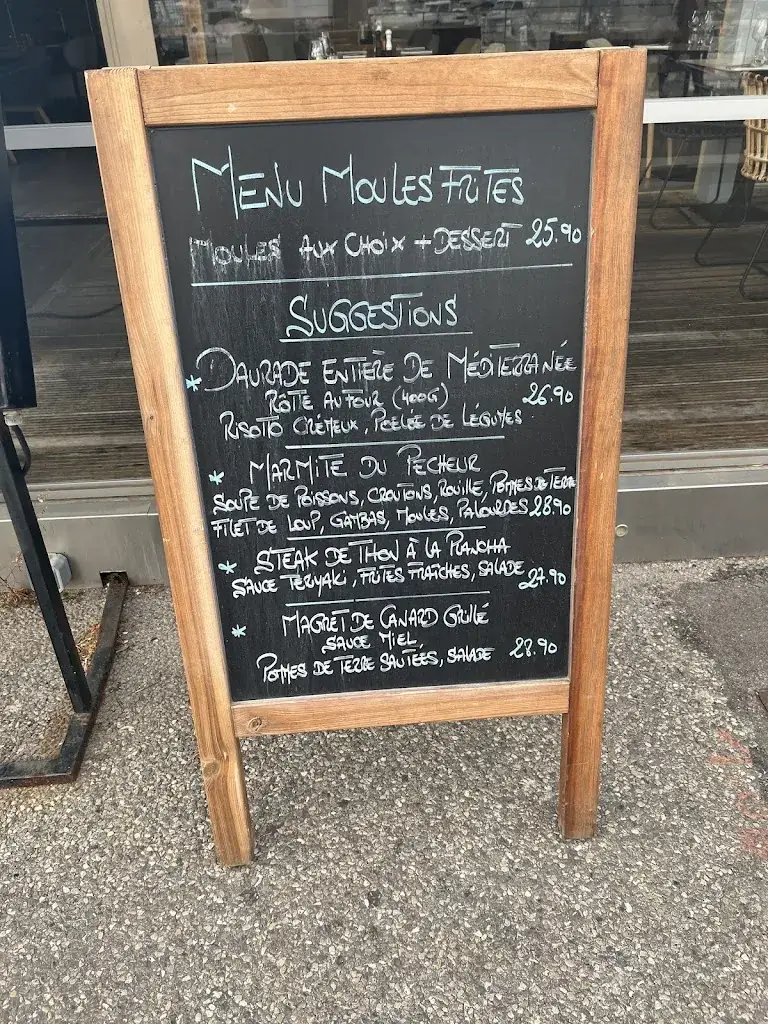 MENU MOULES FRITES
MOULES AUX CHOIX + DESSERT 25.90
SUGGESTIONS
* DAURADE ENTIÈRE DE MÉDITERRANÉE
RÔTIE AU FOUR (400G) 26.90
RISOTTO CRÉMEUX, POÊLÉE DE LÉGUMES
* MARMITE DU PÊCHEUR
SOUPE DE POISSONS, CROUTONS, ROUILLE, POMMES DE TERRE
FILET DE LOUP, GAMBAS, MOULES, PALOURDES 28.90
* STEAK DE THON À LA PLANCHA
SAUCE TERIYAKI, FRITES FRAÎCHES, SALADE 27.90
* MAGRET DE CANARD GRILLÉ
SAUCE MIEL,
POMMES DE TERRE SAUTÉES, SALADE 28.90